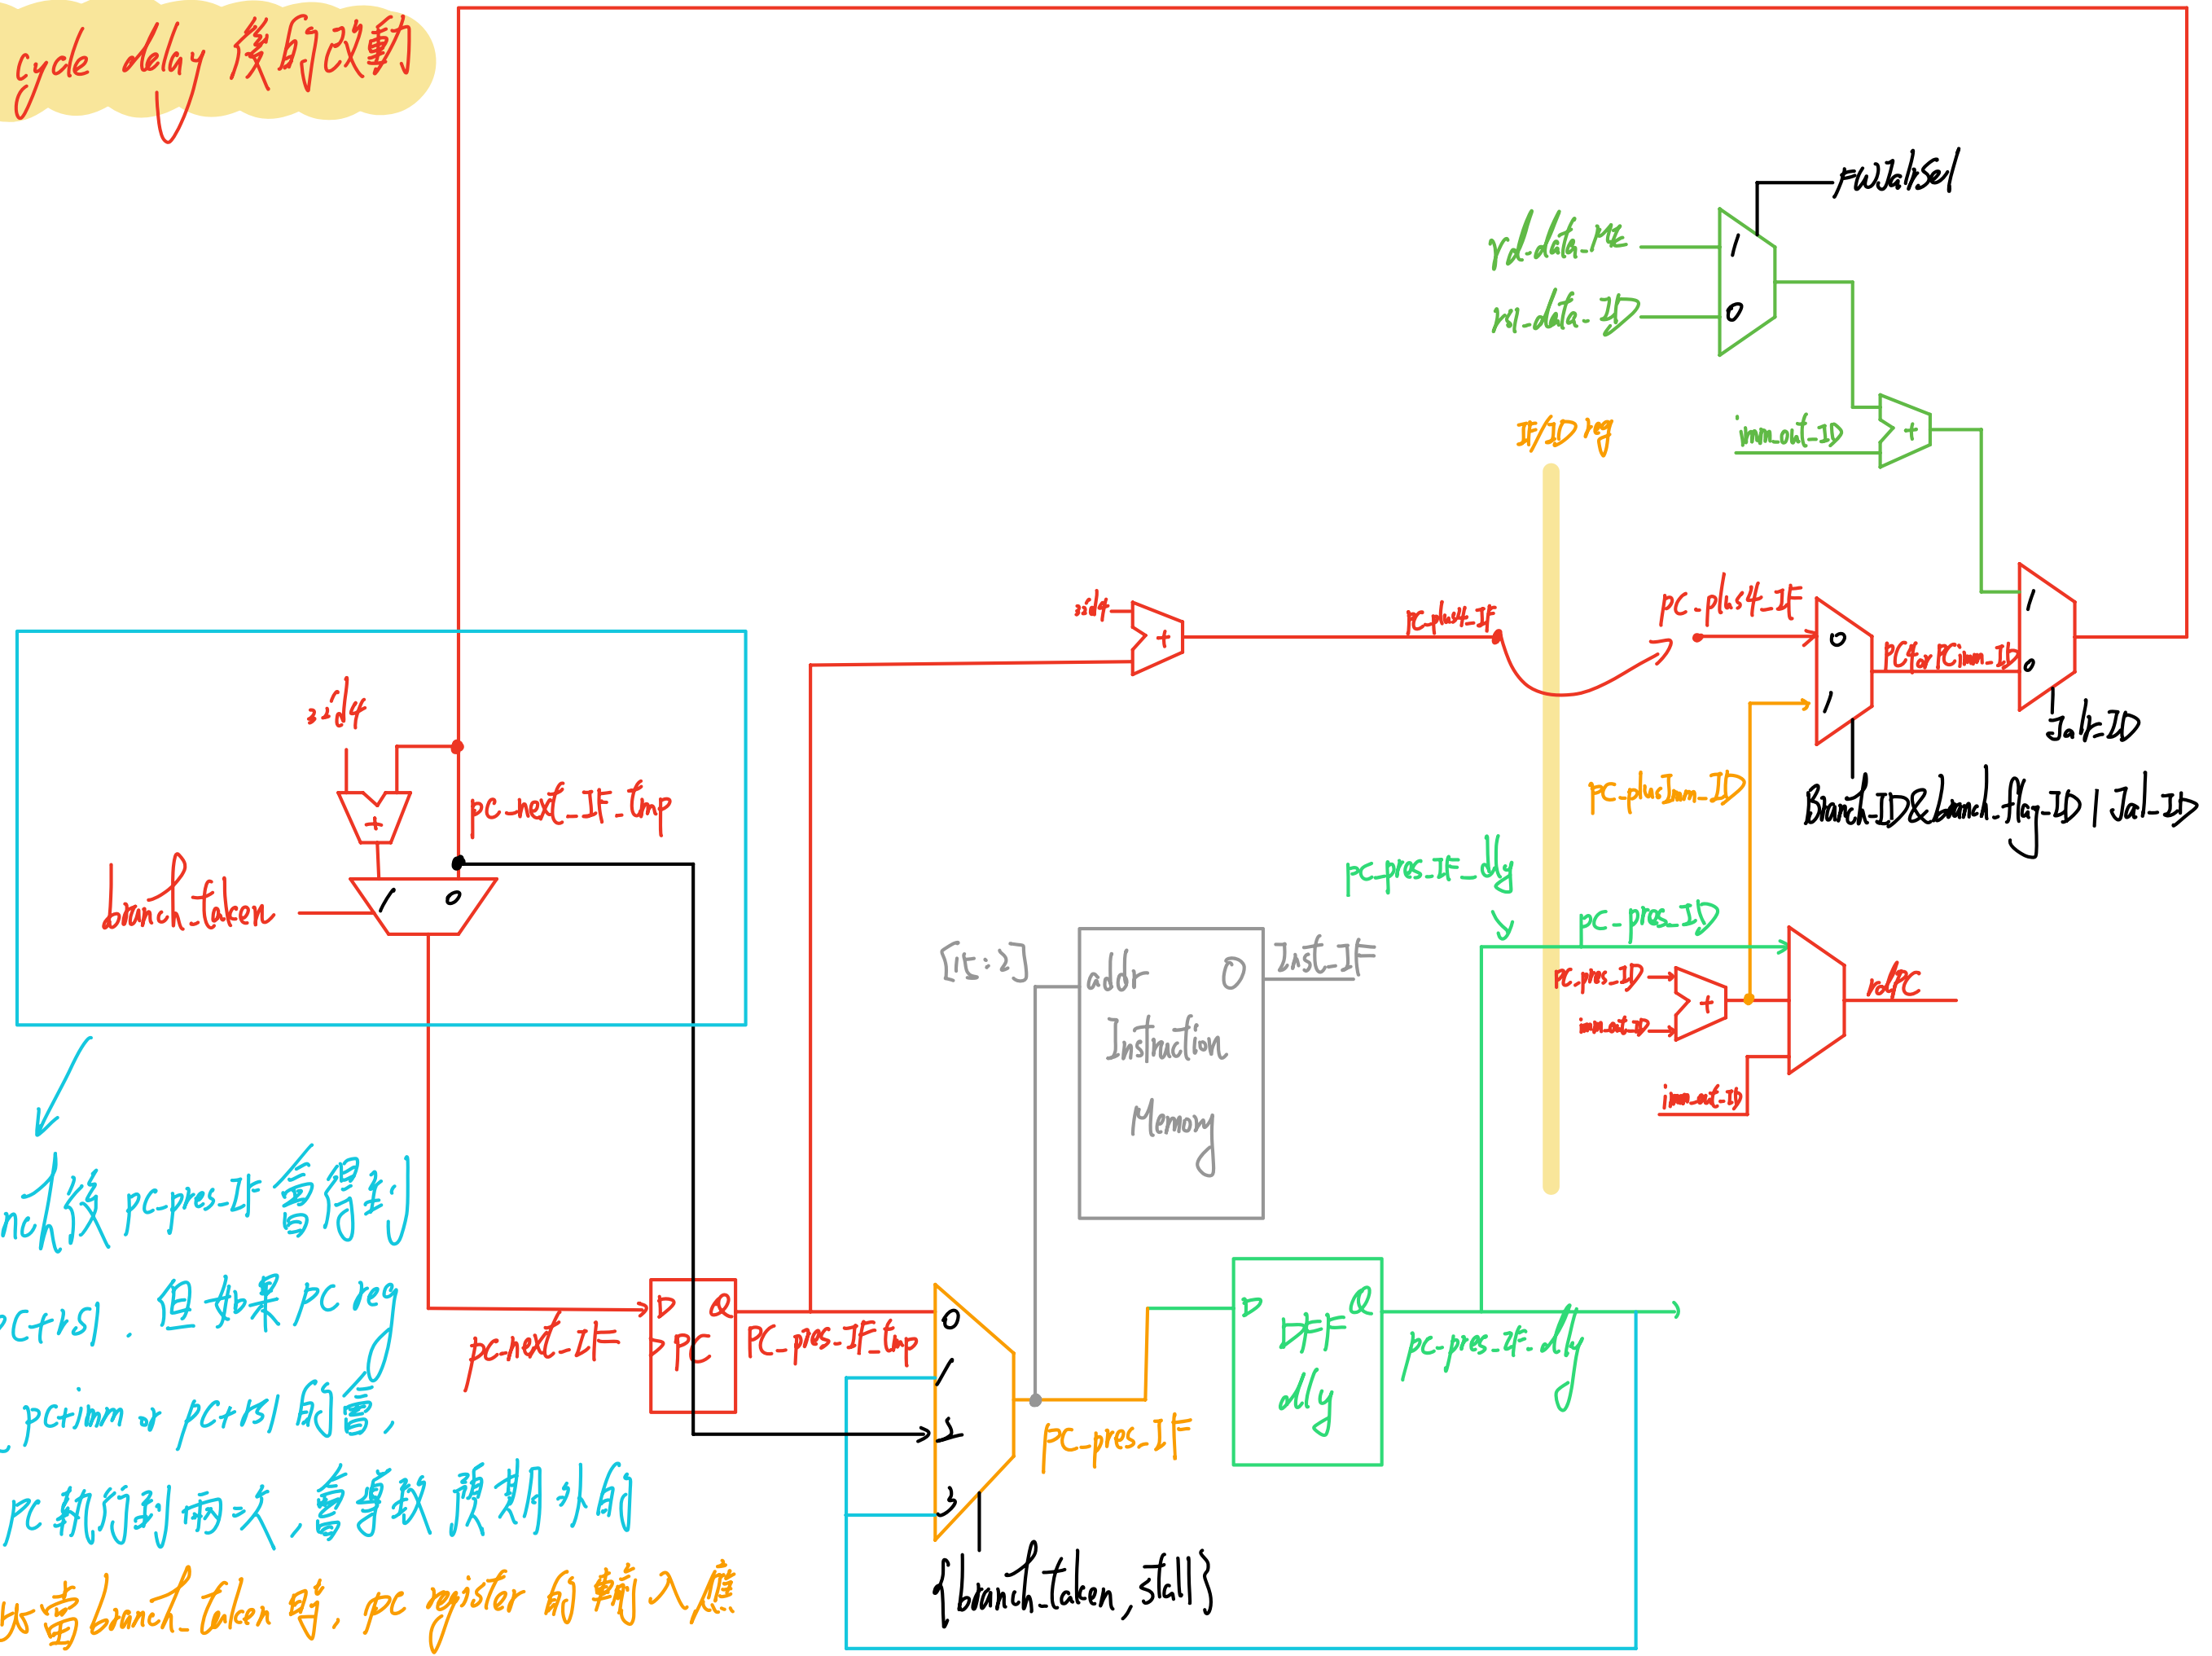 cycle delay 後的改動
FWJalrSel
1
rd_data_ME
rs1_data_ID
0
IF/ID reg
imm_out_ID
+
32'd4
+
pc_plus4_IF
pc_plus4_IF
0
1
PC4orPCimm_ID
1
0
Jalr_ID
32'd4
pc_next_IF_tmp
+
pc_plusImm_ID
Branch_ID&branch_flag_ID | Jal_ID
branch_taken
1
0
pc_pres_IF_dly
pc_pres_ID
[15:2]
addr
O
Inst_IF
Instruction
Memory
pc_pres_ID
+
imm_out_ID
rdPC
imm_out_ID
nch後 pc_pres_IF會得到
pc+rs1. 但如果PC reg
pc+imm or pc+rs1 的值,
PC執行到兩次,
次當branch_taken時, pc register 的輸入應
pc_next_IF
D
Q
PC
PC_pres_IF_tmp
0
1
2
3
pc_pres_IF
{branch_taken, stall}
D
Q
DFF
dly
pc_pres_IF_dly